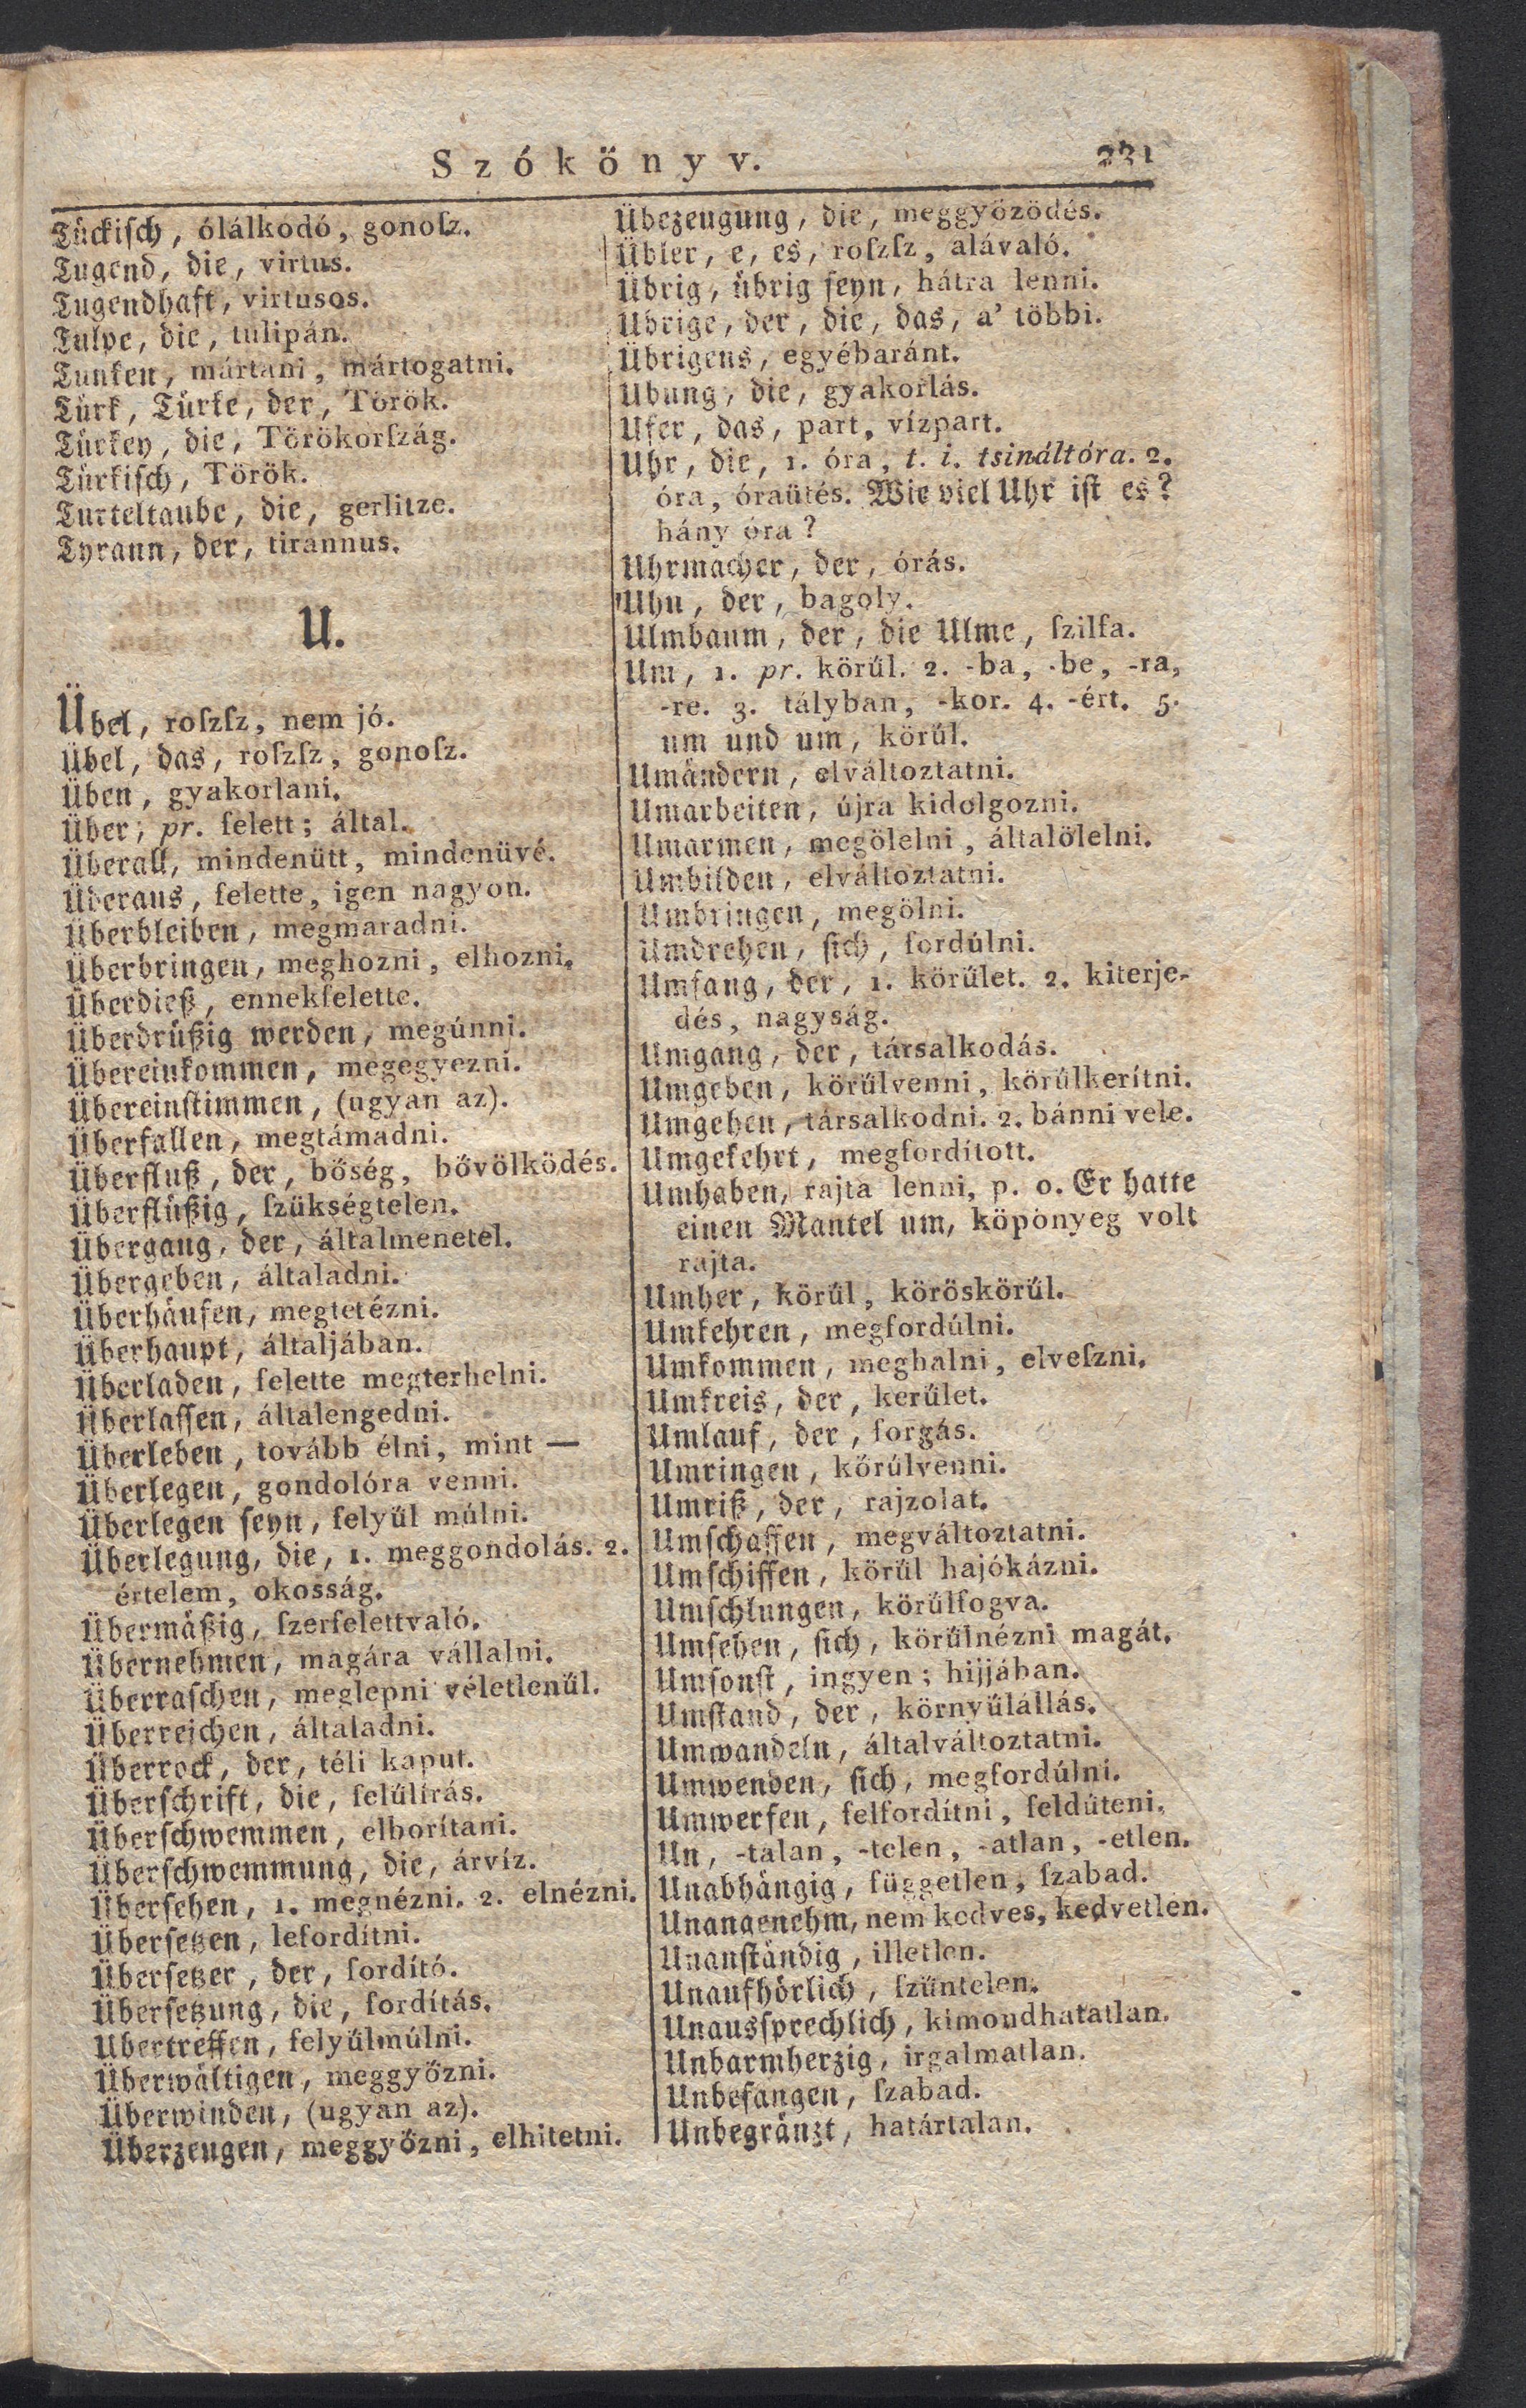 Szókönyv. 231
Tückiſch, ólálkodó, gonoſz.
Tugend, die, virtus.
Tugendhaft, virtusos.
Tulpe, die, tulipán.
Tunken, mártani, mártogatni.
Türk, Türke, der, Török.
Türkey, die, Törökorſzág.
Türkiſch, Török.
Turteltaube, die, gerlitze.
Tyrann, der, tirannus.
U.
Übel, roſzſz, nem jó.
Übel, das, roſzſz, gonoſz.
Üben, gyakorlani.
Über, pr. felett; által.
Überall, mindenütt, mindenüvé.
Überaus, felette, igen nagyon.
Überbleiben, megmaradni.
Überbringen, meghozni, elhozni.
Überdieß, ennekfelette.
Überdrüßig werden, megúnni.
Übereinkommen, megegyezni.
Übereinſtimmen, (ugyan az).
Überfallen, megtámadni.
Überfluß, der, bőség, bővölködés.
Überflüßig, ſzükségtelen.
Übergang, der, általmenetel.
Übergeben, általadni.
Überhäufen, megtetézni.
Überhaupt, általjában.
Überladen, felette megterhelni.
Überlaſſen, általengedni.
Überleben, tovább élni, mint —
Überlegen, gondolóra venni.
Überlegen ſeyn, felyűl múlni.
Überlegung, die, 1. meggondolás. 2.
értelem, okosság.
Übermäßig, ſzerfelettvaló.
Übernehmen, magára vállalni.
Überraſchen, meglepni véletlenűl.
Überreichen, általadni.
Überrock, der, téli kaput.
Überſchrift, die, felűlírás.
Überſchwemmen, elborítani.
Überſchwemmung, die, árvíz.
Überſehen, 1. megnézni. 2. elnézni.
Überſetzen, lefordítni.
Überſetzer, der, fordító.
Überſetzung, die, fordítás.
Übertreffen, felyűlmúlni.
Überwältigen, meggyőzni.
Überwinden, (ugyan az).
Überzeugen, meggyőzni, elhitetni.
Übezeugung, die, meggyözödés.
Übler, e, es, roſzſz, alávaló.
Übrig, übrig ſeyn, hátra lenni.
Übrige, der, die, das, a' többi.
Übrigens, egyébaránt.
Ubung, die, gyakorlás.
Ufer, das, part, vízpart.
Uhr, die, 1. óra, t. i. tsináltóra. 2.
óra, óraütés. Wie viel Uhr iſt es?
hány óra?
Uhrmacher, der, órás.
Uhu, der, bagoly.
Ulmbaum, der, die Ulme, ſzilfa.
Um, 1. pr. körűl. 2. -ba, -be, -ra,
-re. 3. tályban, -kor. 4. -ért. 5.
um und um, körűl.
Umändern, elváltoztatni.
Umarbeiten, újra kidolgozni.
Umarmen, megölelni, általölelni.
Umbilden, elváltoztatni.
Umbringen, megölni.
Umdrehen, ſich, fordúlni.
Umfang, der, 1. körűlet. 2. kiterje-
dés, nagyság.
Umgang, der, társalkodás.
Umgeben, körűlvenni, körűlkerítni.
Umgehen, társalkodni. 2. bánni vele.
Umgekehrt, megfordított.
Umhaben, rajta lenni, p. o. Er hatte
einen Mantel um, köpönyeg volt
rajta.
Umher, körűl, köröskörűl.
Umkehren, megfordúlni.
Umkommen, meghalni, elveſzni.
Umkreis, der, kerűlet.
Umlauf, der, forgás.
Umringen, kőrúlvenni.
Umriß, der, rajzolat.
Umſchaffen, megváltoztatni.
Umſchiffen, körűl hajókázni.
Umſchlungen, körűlfogva.
Umſehen, ſich, körűlnézni magát.
Umſonſt, ingyen; hijjában.
Umſtand, der, környűlállás.
Umwandeln, általváltoztatni.
Umwenden, ſich, megfordúlni.
Umwerfen, felfordítni, feldúteni.
Un, -talan, -telen, -atlan, -etlen.
Unabhängig, független, ſzabad.
Unangenehm, nem kedves, kedvetlen.
Unanſtändig, illetlen.
Unaufhörlich, ſzüntelen.
Unausſprechlich, kimondhatatlan.
Unbarmherzig, irgalmatlan.
Unbefangen, ſzabad.
Unbegränzt, határtalan.